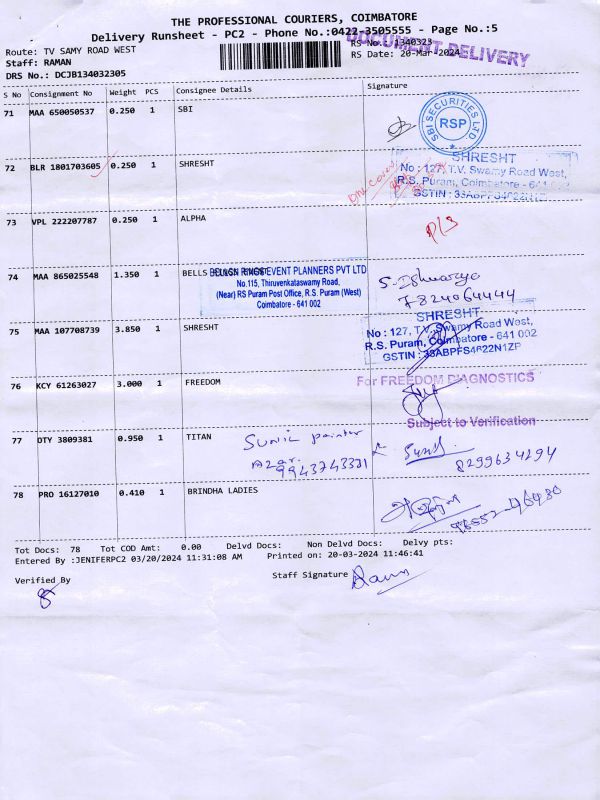 THE PROFESSIONAL COURIERS, COIMBATORE
Delivery Runsheet - PC2 - Phone No.:0422-3505555 - Page No.:5
DOCUMENT DELIVERY
Route: TV SAMY ROAD WEST
RS No.: 1340323
Staff: RAMAN
RS Date: 20-Mar-2024
DRS No.: DCJB134032305
S No Consignment No Weight PCS Consignee Details Signature
71 MAA 650050537 0.250 1 SBI
SBI SECURITIES LTD
RSP
72 BLR 1801703605 0.250 1 SHRESHT
SHRESHT
No : 127, T.V. Swamy Road West,
R.S. Puram, Coimbatore - 641 002
GSTIN : 33ABPFS4622N1ZP
73 VPL 222207787 0.250 1 ALPHA
74 MAA 865025548 1.350 1 BELLS
EVENT PLANNERS PVT LTD
No.115, Thiruvenkataswamy Road,
(Near) RS Puram Post Office, R.S. Puram (West)
Coimbatore - 641 002
S. Ishwarya
7824064444
75 MAA 107708739 3.850 1 SHRESHT
SHRESHT
No : 127, T.V. Swamy Road West,
R.S. Puram, Coimbatore - 641 002
GSTIN : 33ABPFS4622N1ZP
76 KCY 61263027 3.000 1 FREEDOM
For FREEDOM DIAGNOSTICS
Subject to Verification
77 DTY 3809381 0.950 1 TITAN
Sunil painter
Azar
9943743331
Sunil
8299634294
78 PRO 16127010 0.410 1 BRINDHA LADIES
96552-46480
Tot Docs: 78 Tot COD Amt: 0.00 Delvd Docs: Non Delvd Docs: Delvy pts:
Entered By :JENIFERPC2 03/20/2024 11:31:08 AM Printed on: 20-03-2024 11:46:41
Verified By
Staff Signature
Raman